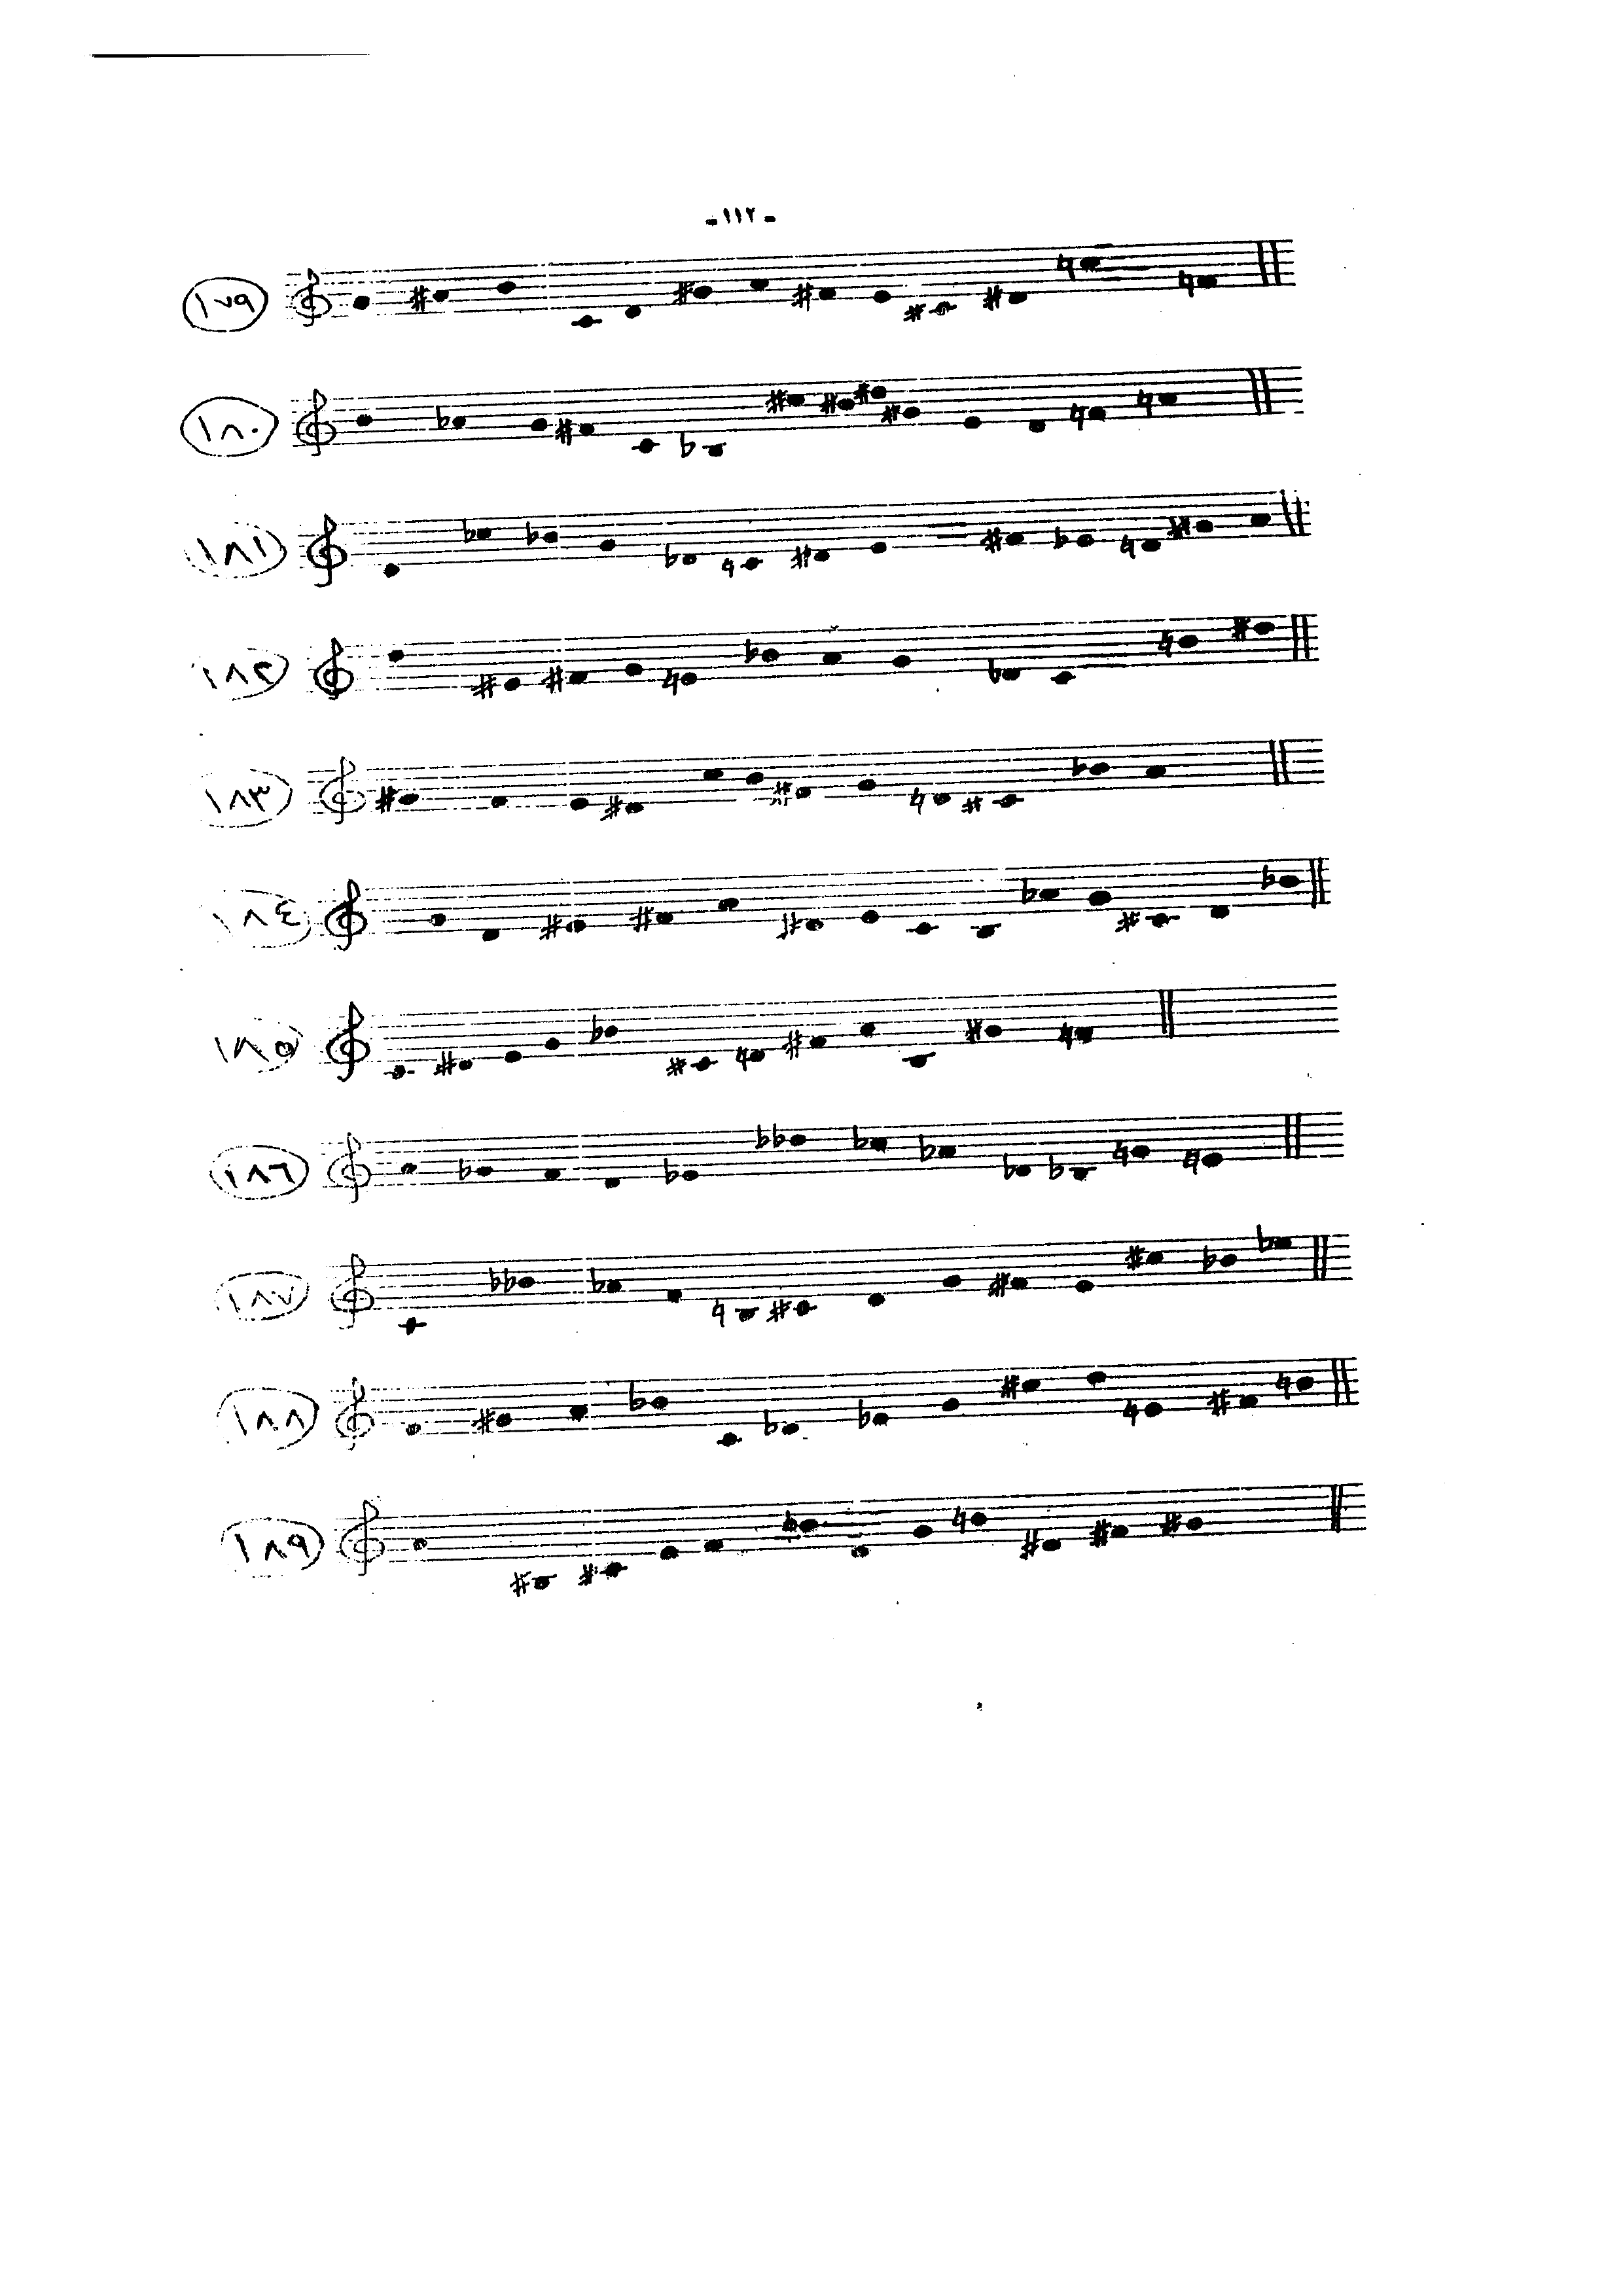 -١١٢-
١٧٩
١٨٠
١٨١
١٨٢
١٨٣
١٨٤
١٨٥
١٨٦
١٨٧
١٨٨
١٨٩